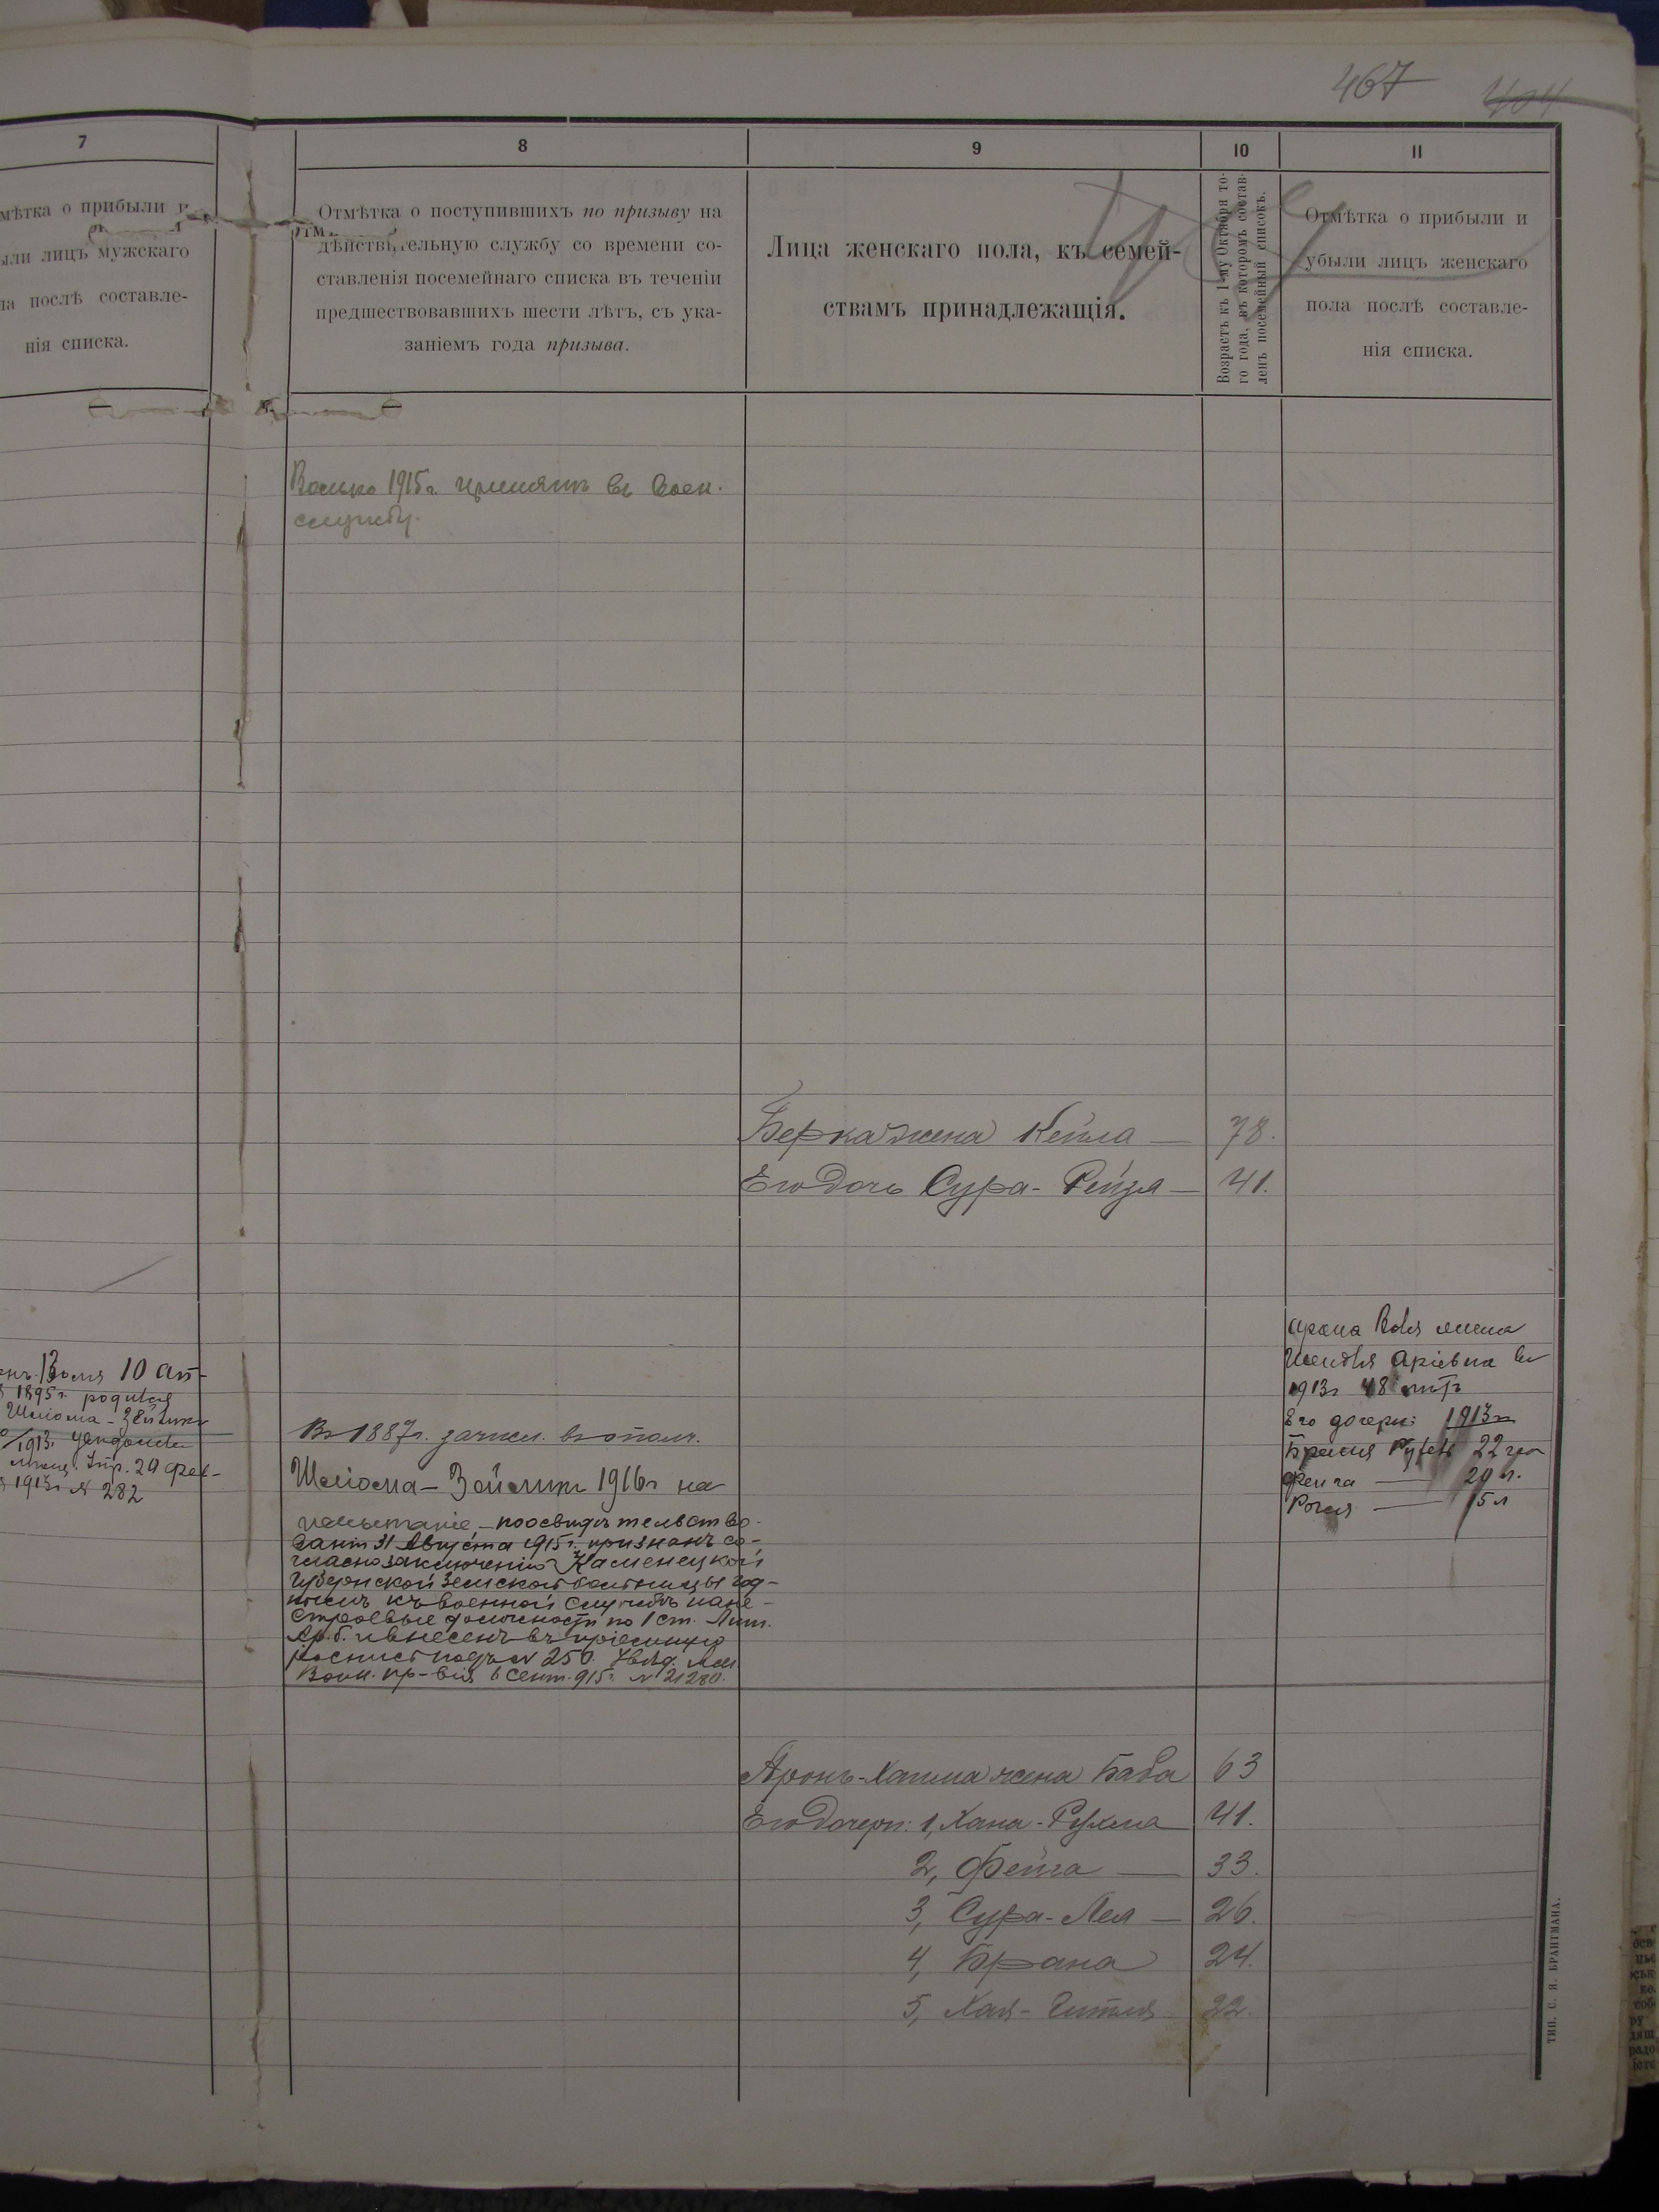 467
404
7
8
9
10
11
мѣтка о прибыли и
ыли лицъ мужскаго
ла послѣ составле-
нія списка.
Отмѣтка о поступившихъ по призыву на
дѣйствительную службу со времени со-
ставленія посемейнаго списка въ теченіи
предшествовавшихъ шести лѣтъ, съ ука-
заніемъ года призыва.
Лица женскаго пола, къ семей-
ствамъ принадлежащія.
Возрастъ къ 1-му Октября то-
го года, въ которомъ состав-
ленъ посемейный списокъ.
Отмѣтка о прибыли и
убыли лицъ женскаго
пола послѣ составле-
нія списка.
1915 г. принятъ въ воен.
службу.
Берка жена Кейла — 78.
Его дочь Сура-Рейзя — 41.
жена
Аріевна въ
1913 г 48 лѣтъ
Его дочери: 1913 г
22 года
Фейга — 20 л.
Рохля — 15 л
10 ап-
1895 г. родился
Шліома-Зейлик
1913 г.
29 фев-
1913 г. N 282
Въ 1887 г. зачисл. въ ополч.
Шліома-Зейликъ 1916 г на
испытаніе, — поосвидѣтельство-
ванъ 31 Августа 1915 г. признанъ со-
гласно заключенію Каменецкой
Губернской Земской больницы год-
нымъ къ военной службѣ на не-
строевые должности по 1 ст. Лит.
и внесенъ въ пріемную
роспись подъ N 250. Увѣд.
Воин. пр-вія 6 Сент. 915 г. N 21280.
Аронъ-Хаима жена Баба 63
Его дочери: 1, Хана-Рухля 41.
2, Фейга — 33.
3, Сура-Лея — 26.
4, Брана 24.
5, Хая-Гитля 22.
ТИП. С. Я. БРАНТМАНА.